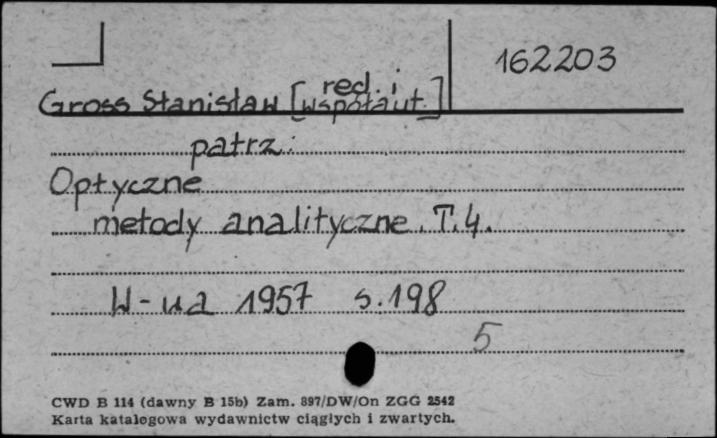 162203
Gross Stanisław [red. i współaut.]
patrz:
Optyczne
metody analityczne. T.4.
W-wa 1957 s.198
5
CWD B 114 (dawny B 15b) Zam. 897/DW/On ZGG 2542
Karta katalogowa wydawnictw ciągłych i zwartych.